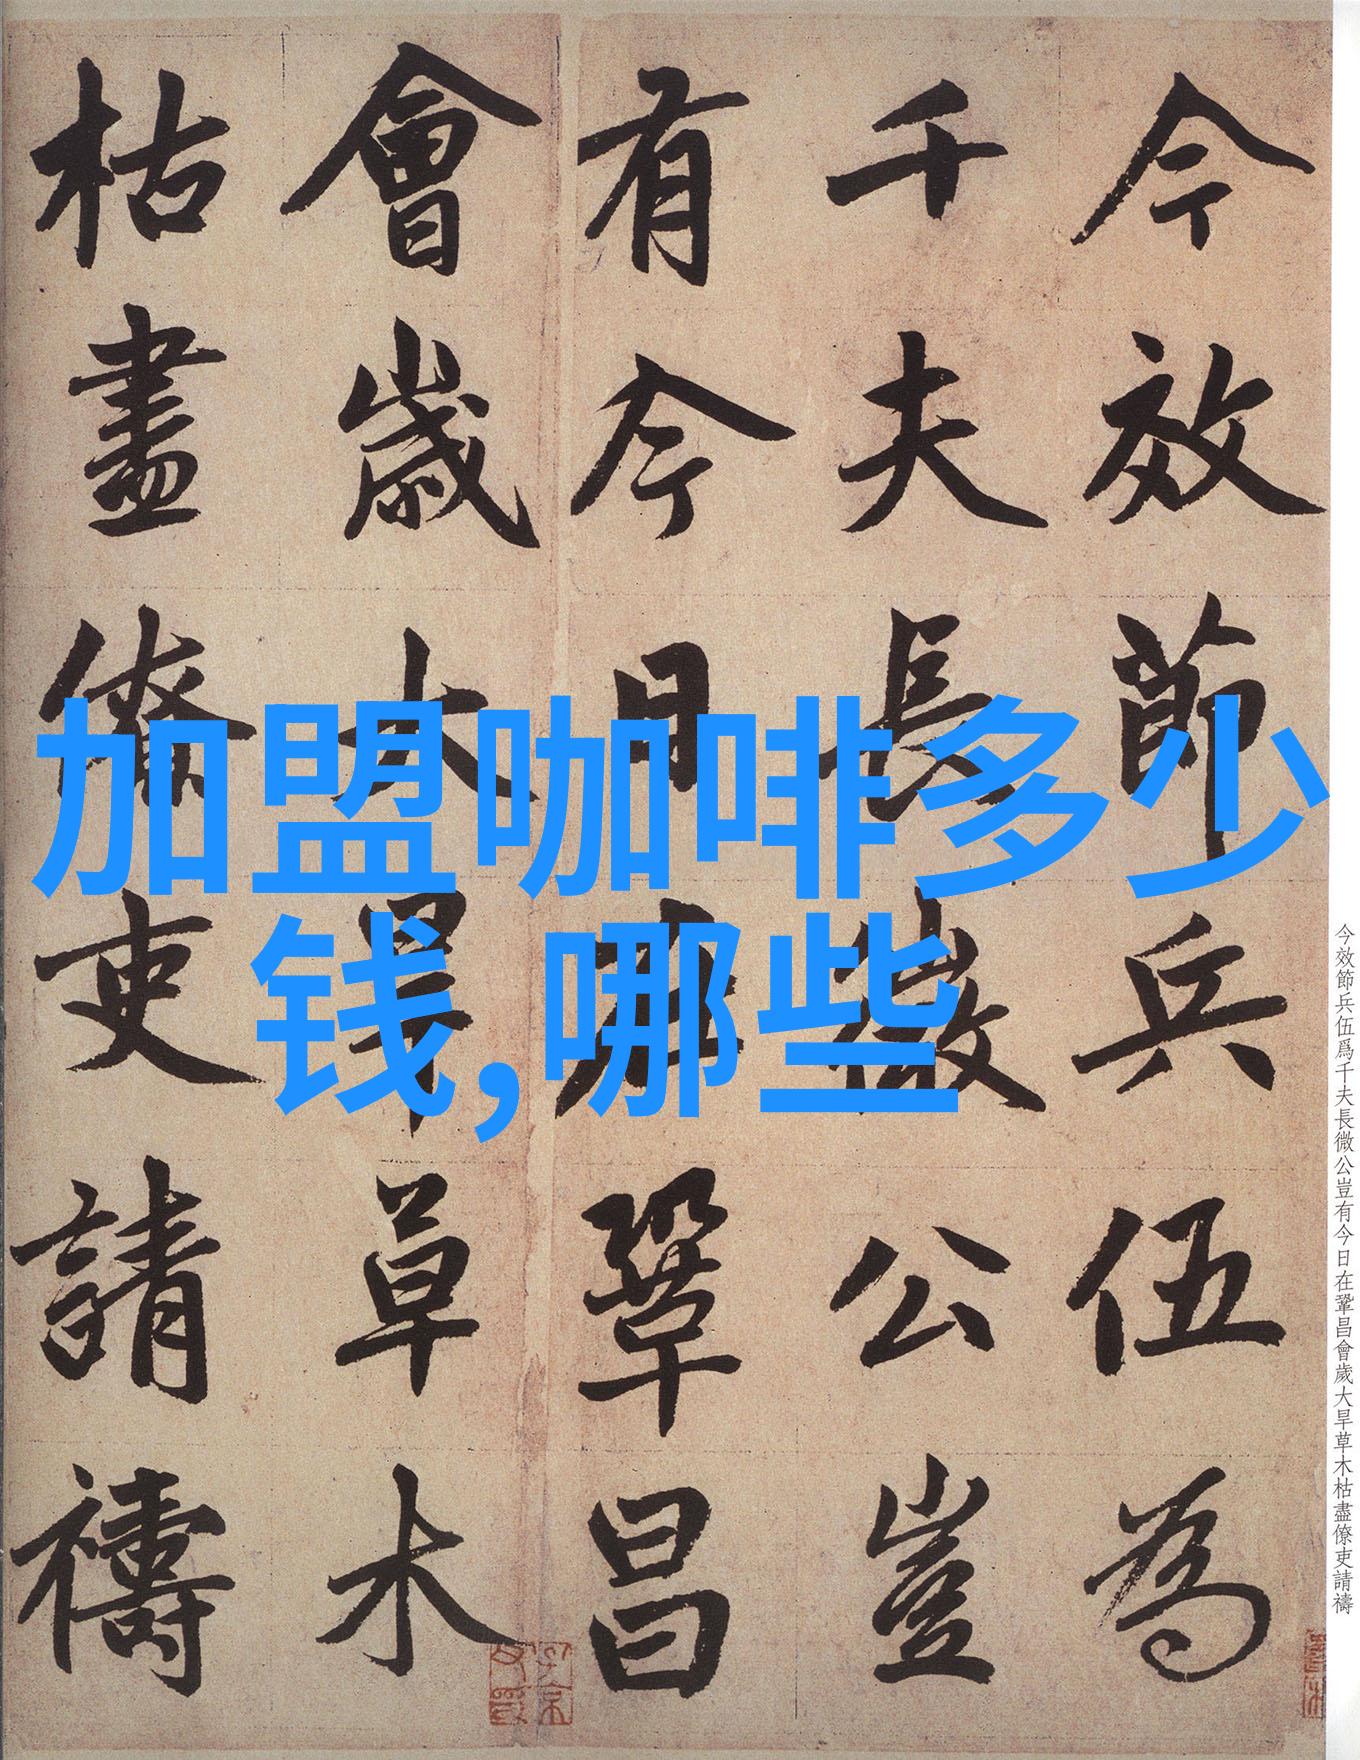 今效節兵伍為
千夫長微公豈
有今日在鞏昌
會歲大旱草木
枯盡僚吏請禱
加盟咖啡多少
钱,哪些
今效節兵伍爲千夫長微公豈有今日在鞏昌會歲大旱草木枯盡僚吏請禱